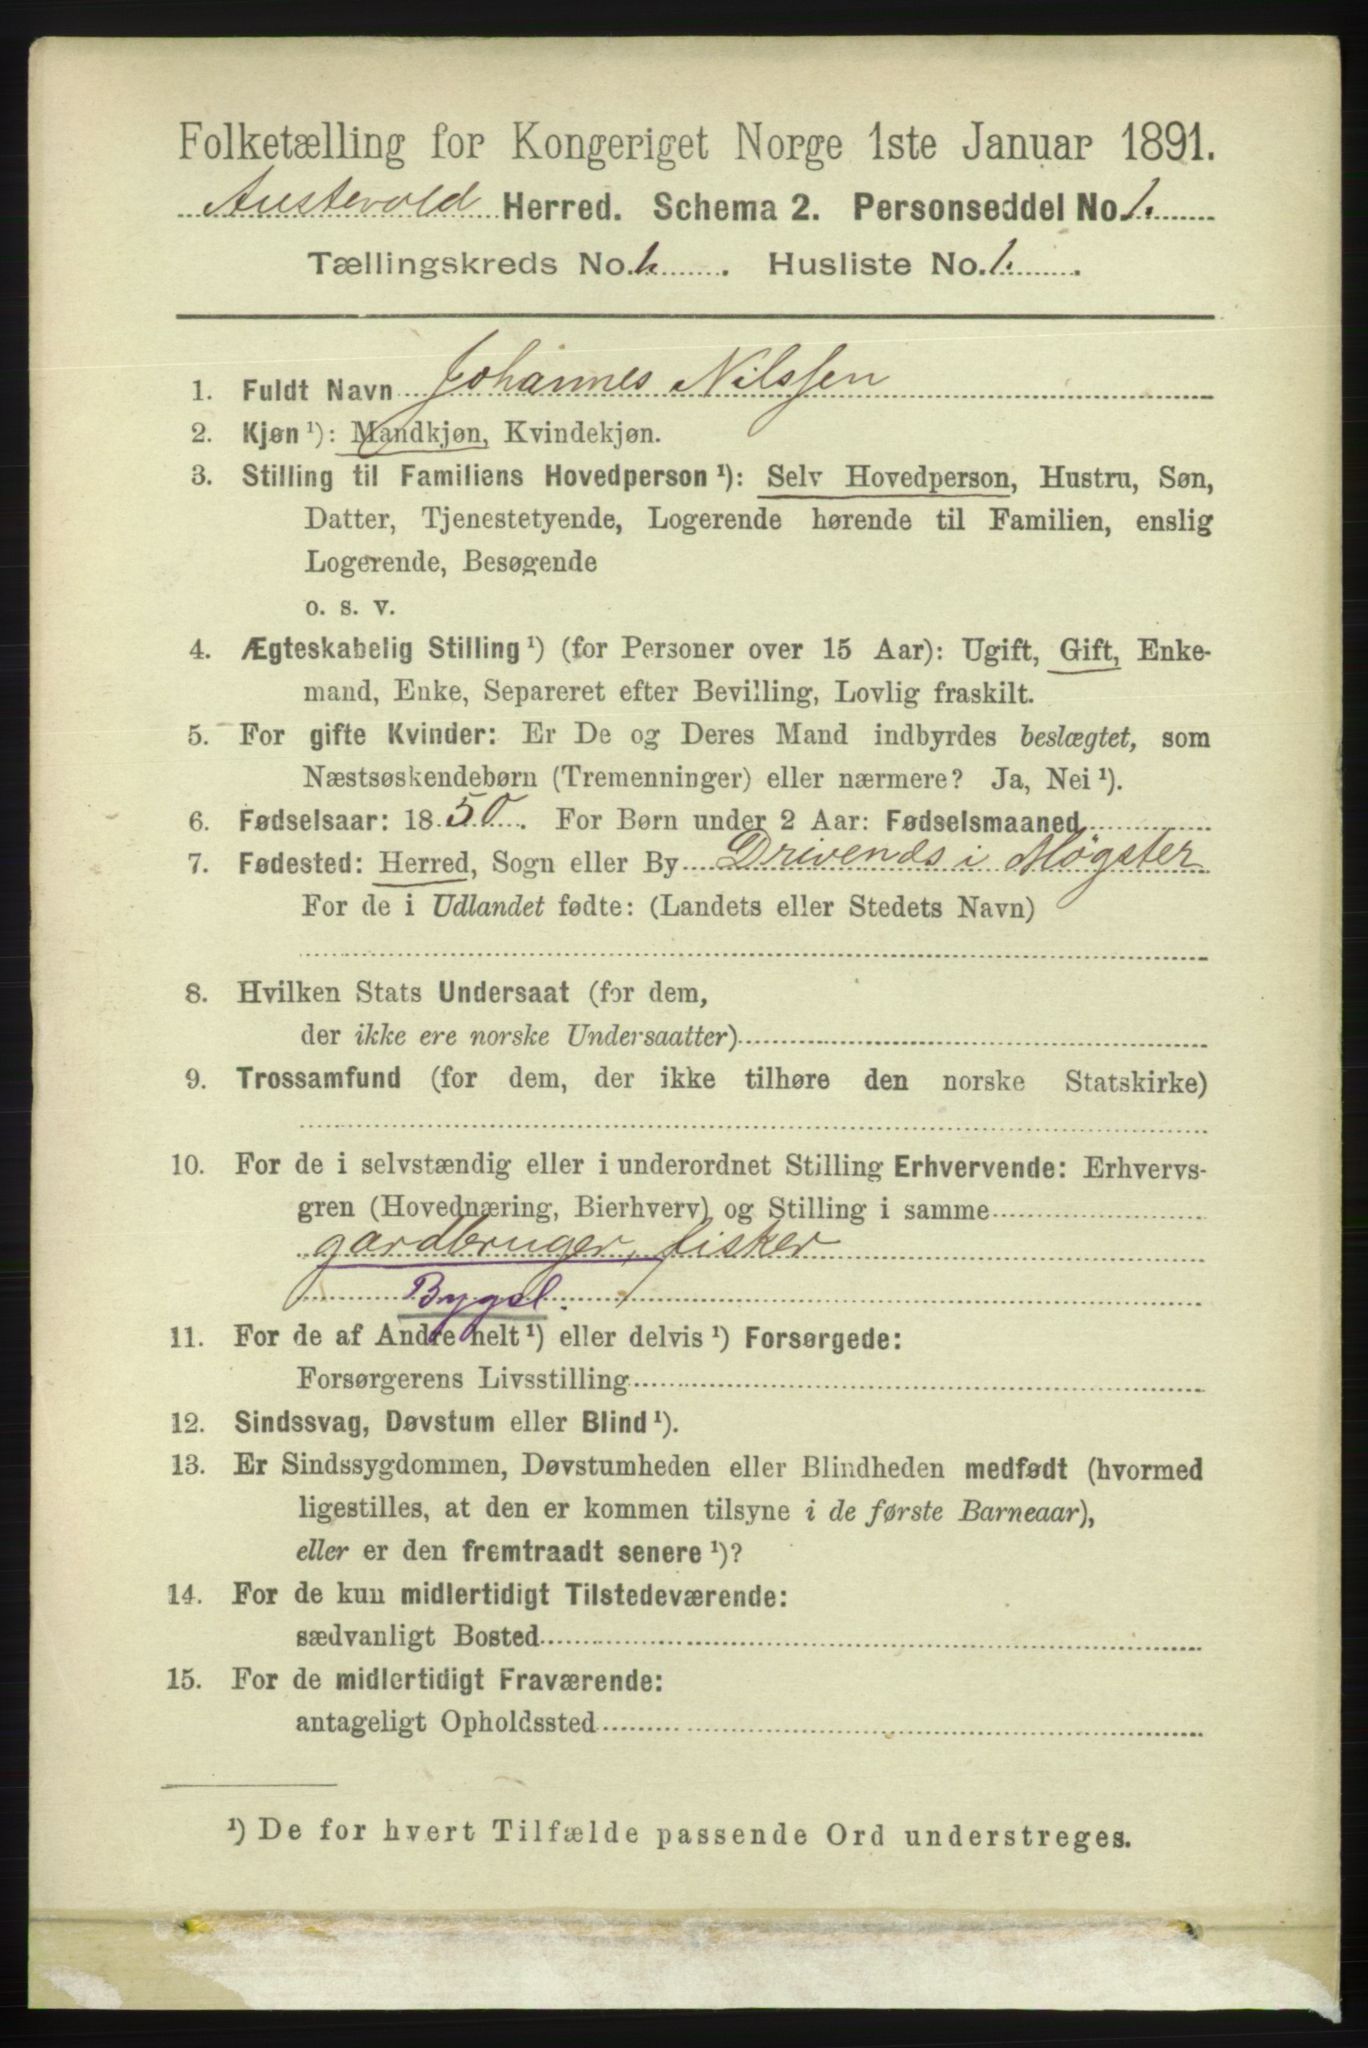 Folketælling for Kongeriget Norge 1ste Januar 1891.
Austevold Herred. Schema 2. Personseddel No. 1.
Tællingskreds No. . Husliste No. 1.
1. Fuldt Navn Johannes Nilssen
2. Kjøn ¹): Mandkjøn, Kvindekjøn.
3. Stilling til Familiens Hovedperson ¹): Selv Hovedperson, Hustru, Søn,
Datter, Tjenestetyende, Logerende hørende til Familien, enslig
Logerende, Besøgende
o. s. v.
4. Ægteskabelig Stilling ¹) (for Personer over 15 Aar): Ugift, Gift, Enke-
mand, Enke, Separeret efter Bevilling, Lovlig fraskilt.
5. For gifte Kvinder: Er De og Deres Mand indbyrdes beslægtet, som
Næstsøskendebørn (Tremenninger) eller nærmere? Ja, Nei ¹).
6. Fødselsaar: 1850. For Børn under 2 Aar: Fødselsmaaned
7. Fødested: Herred, Sogn eller By Drivenæs i Møgster
For de i Udlandet fødte: (Landets eller Stedets Navn)
8. Hvilken Stats Undersaat (for dem,
der ikke ere norske Undersaatter)
9. Trossamfund (for dem, der ikke tilhøre den norske Statskirke)
10. For de i selvstændig eller i underordnet Stilling Erhvervende: Erhvervs-
gren (Hovednæring, Bierhverv) og Stilling i samme
gardbruger, fisker
Bygsl.
11. For de af Andre helt ¹) eller delvis ¹) Forsørgede:
Forsørgerens Livsstilling
12. Sindssvag, Døvstum eller Blind ¹).
13. Er Sindssygdommen, Døvstumheden eller Blindheden medfødt (hvormed
ligestilles, at den er kommen tilsyne i de første Barneaar),
eller er den fremtraadt senere ¹)?
14. For de kun midlertidigt Tilstedeværende:
sædvanligt Bosted
15. For de midlertidigt Fraværende:
antageligt Opholdssted
¹) De for hvert Tilfælde passende Ord understreges.